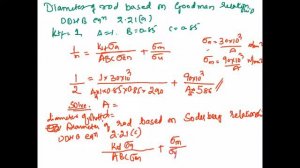 Diameter of rod based on Goodman relation
DDHB eqn 2.21(a)
A=1. B=0.85 C=0.85
1/n = Kfσa/ABCσen + σm/σu
σa = 30×10³/A N/mm²
σm = 90×10³/A N/mm²
1/2 = 1×30×10³/A×1×0.85×0.85×290 + 90×10³/A×585
Solve. A =
diameter of
Diameter of rod based on Soderberg Relation
DDHB eqn 2.21(c)
Kfσa/ABCσen + σm/σy